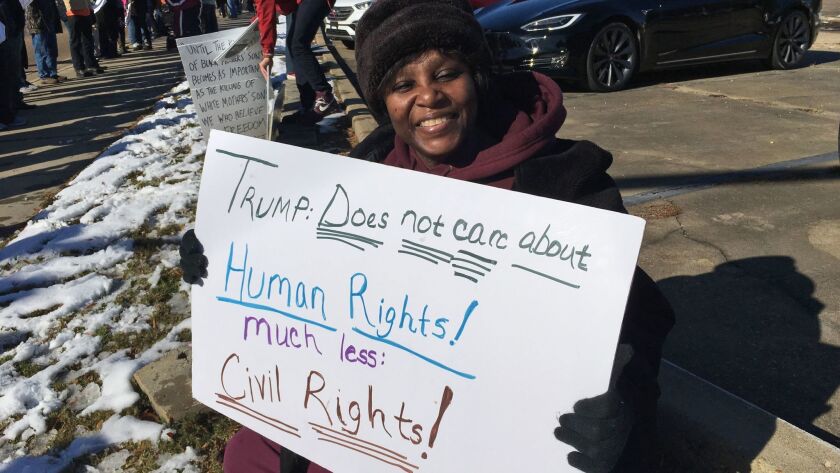 UNTIL THE
OF BLACK MOTHERS' SONS
BECOMES AS IMPORTANT
AS THE KILLING OF
WHITE MOTHERS' SON
WE WHO BELIEVE
FREEDOM
TRUMP: Does not care about
Human Rights!
much less:
Civil Rights!